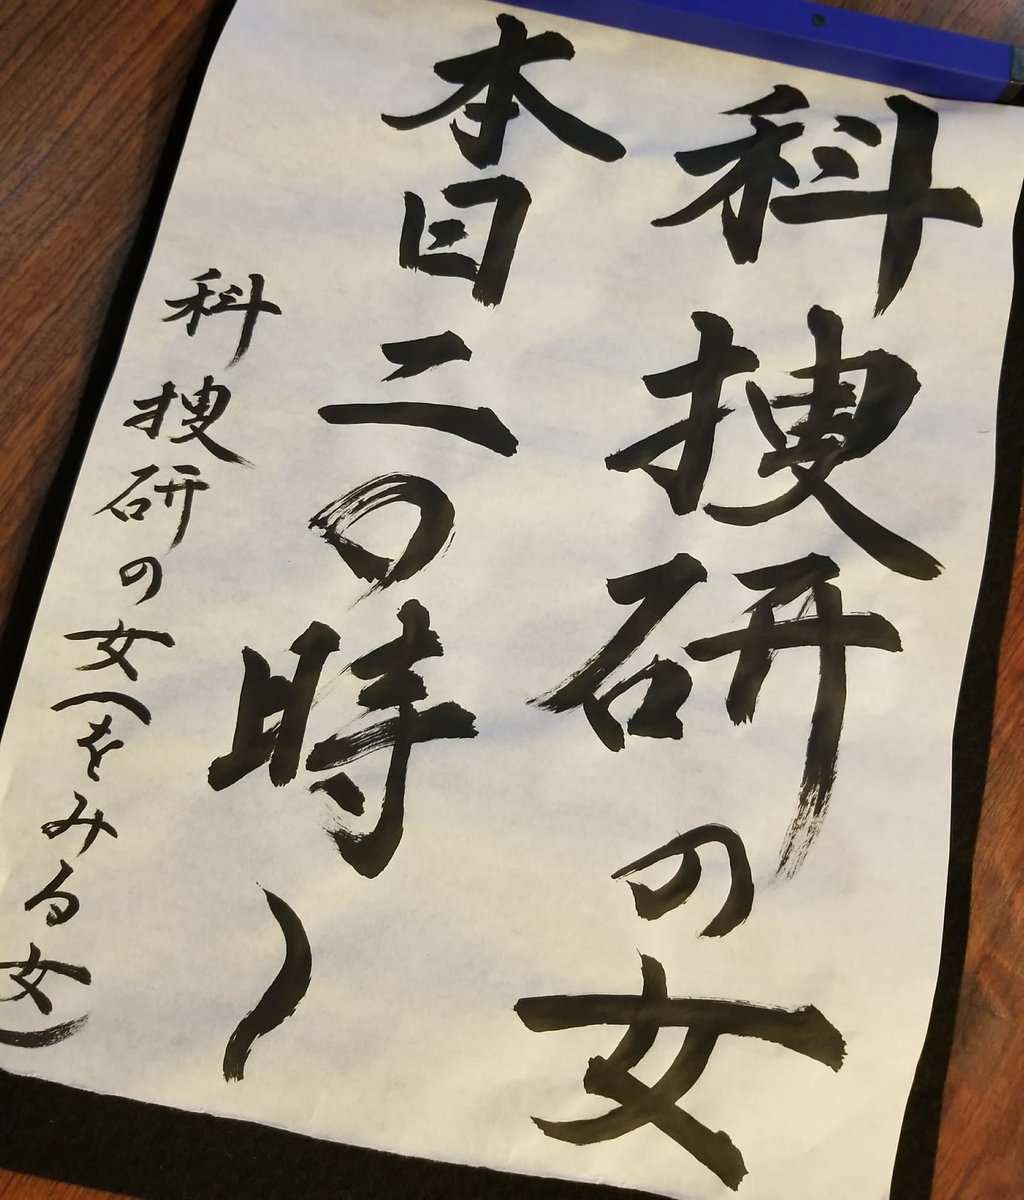 科捜研の女
本日二〇時〜
科捜研の女(をみる女)